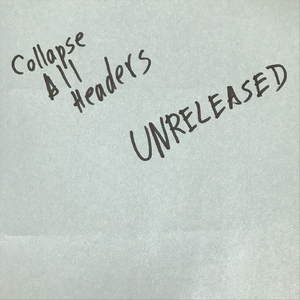 Collapse
All
Headers
UNRELEASED